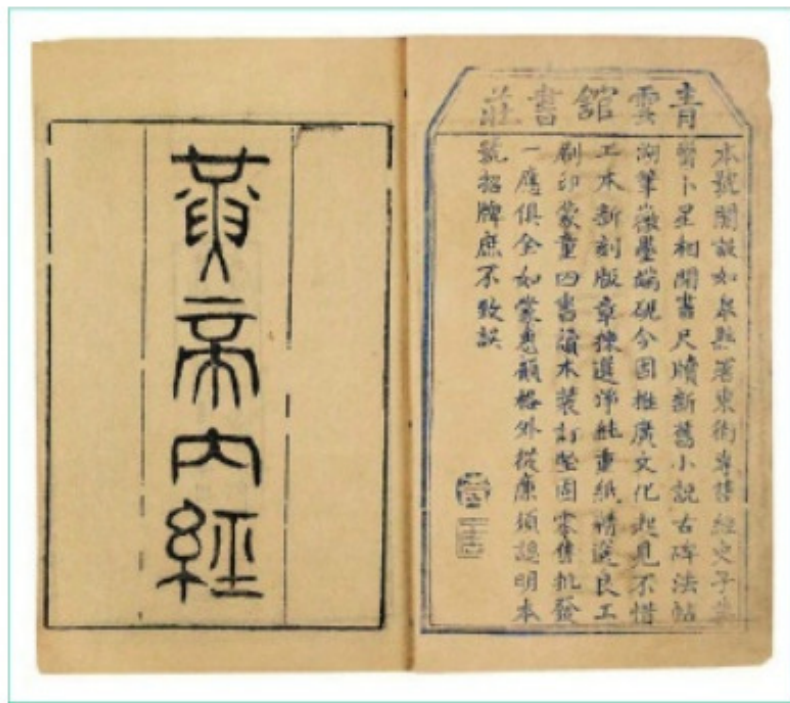 青雲館書莊
本號開設如皋縣署東街專售經史子集
醫卜星相閒書尺牘新舊小說古碑法帖
湖筆徽墨端硯今因推廣文化起見不惜
工本新刻版章揀選淨料重紙精選良工
刷印蒙童四書讀本裝訂堅固零售批發
一應俱全如蒙惠顧格外從廉須認明本
號招牌庶不致誤
黃帝內經